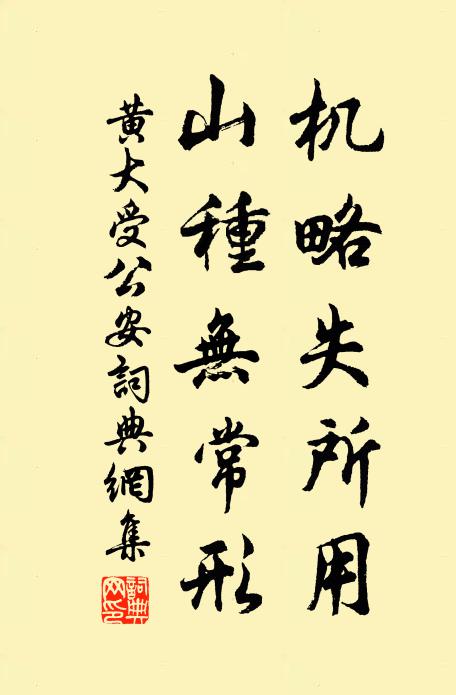 机略失所用
山種無常形
黃大受公安詞典網集
詞典網印